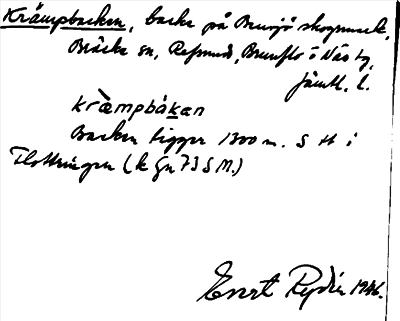 Krämpbacken, backe på Bensjö skogsmark,
Bräcke sn, Refsunds, Brunflo o Näs tg,
Jämtl. l.
kràmpbákan
Backen ligger 1300 m. S H i
(k Gn 73 S M.)
Evert Rydén 1946.